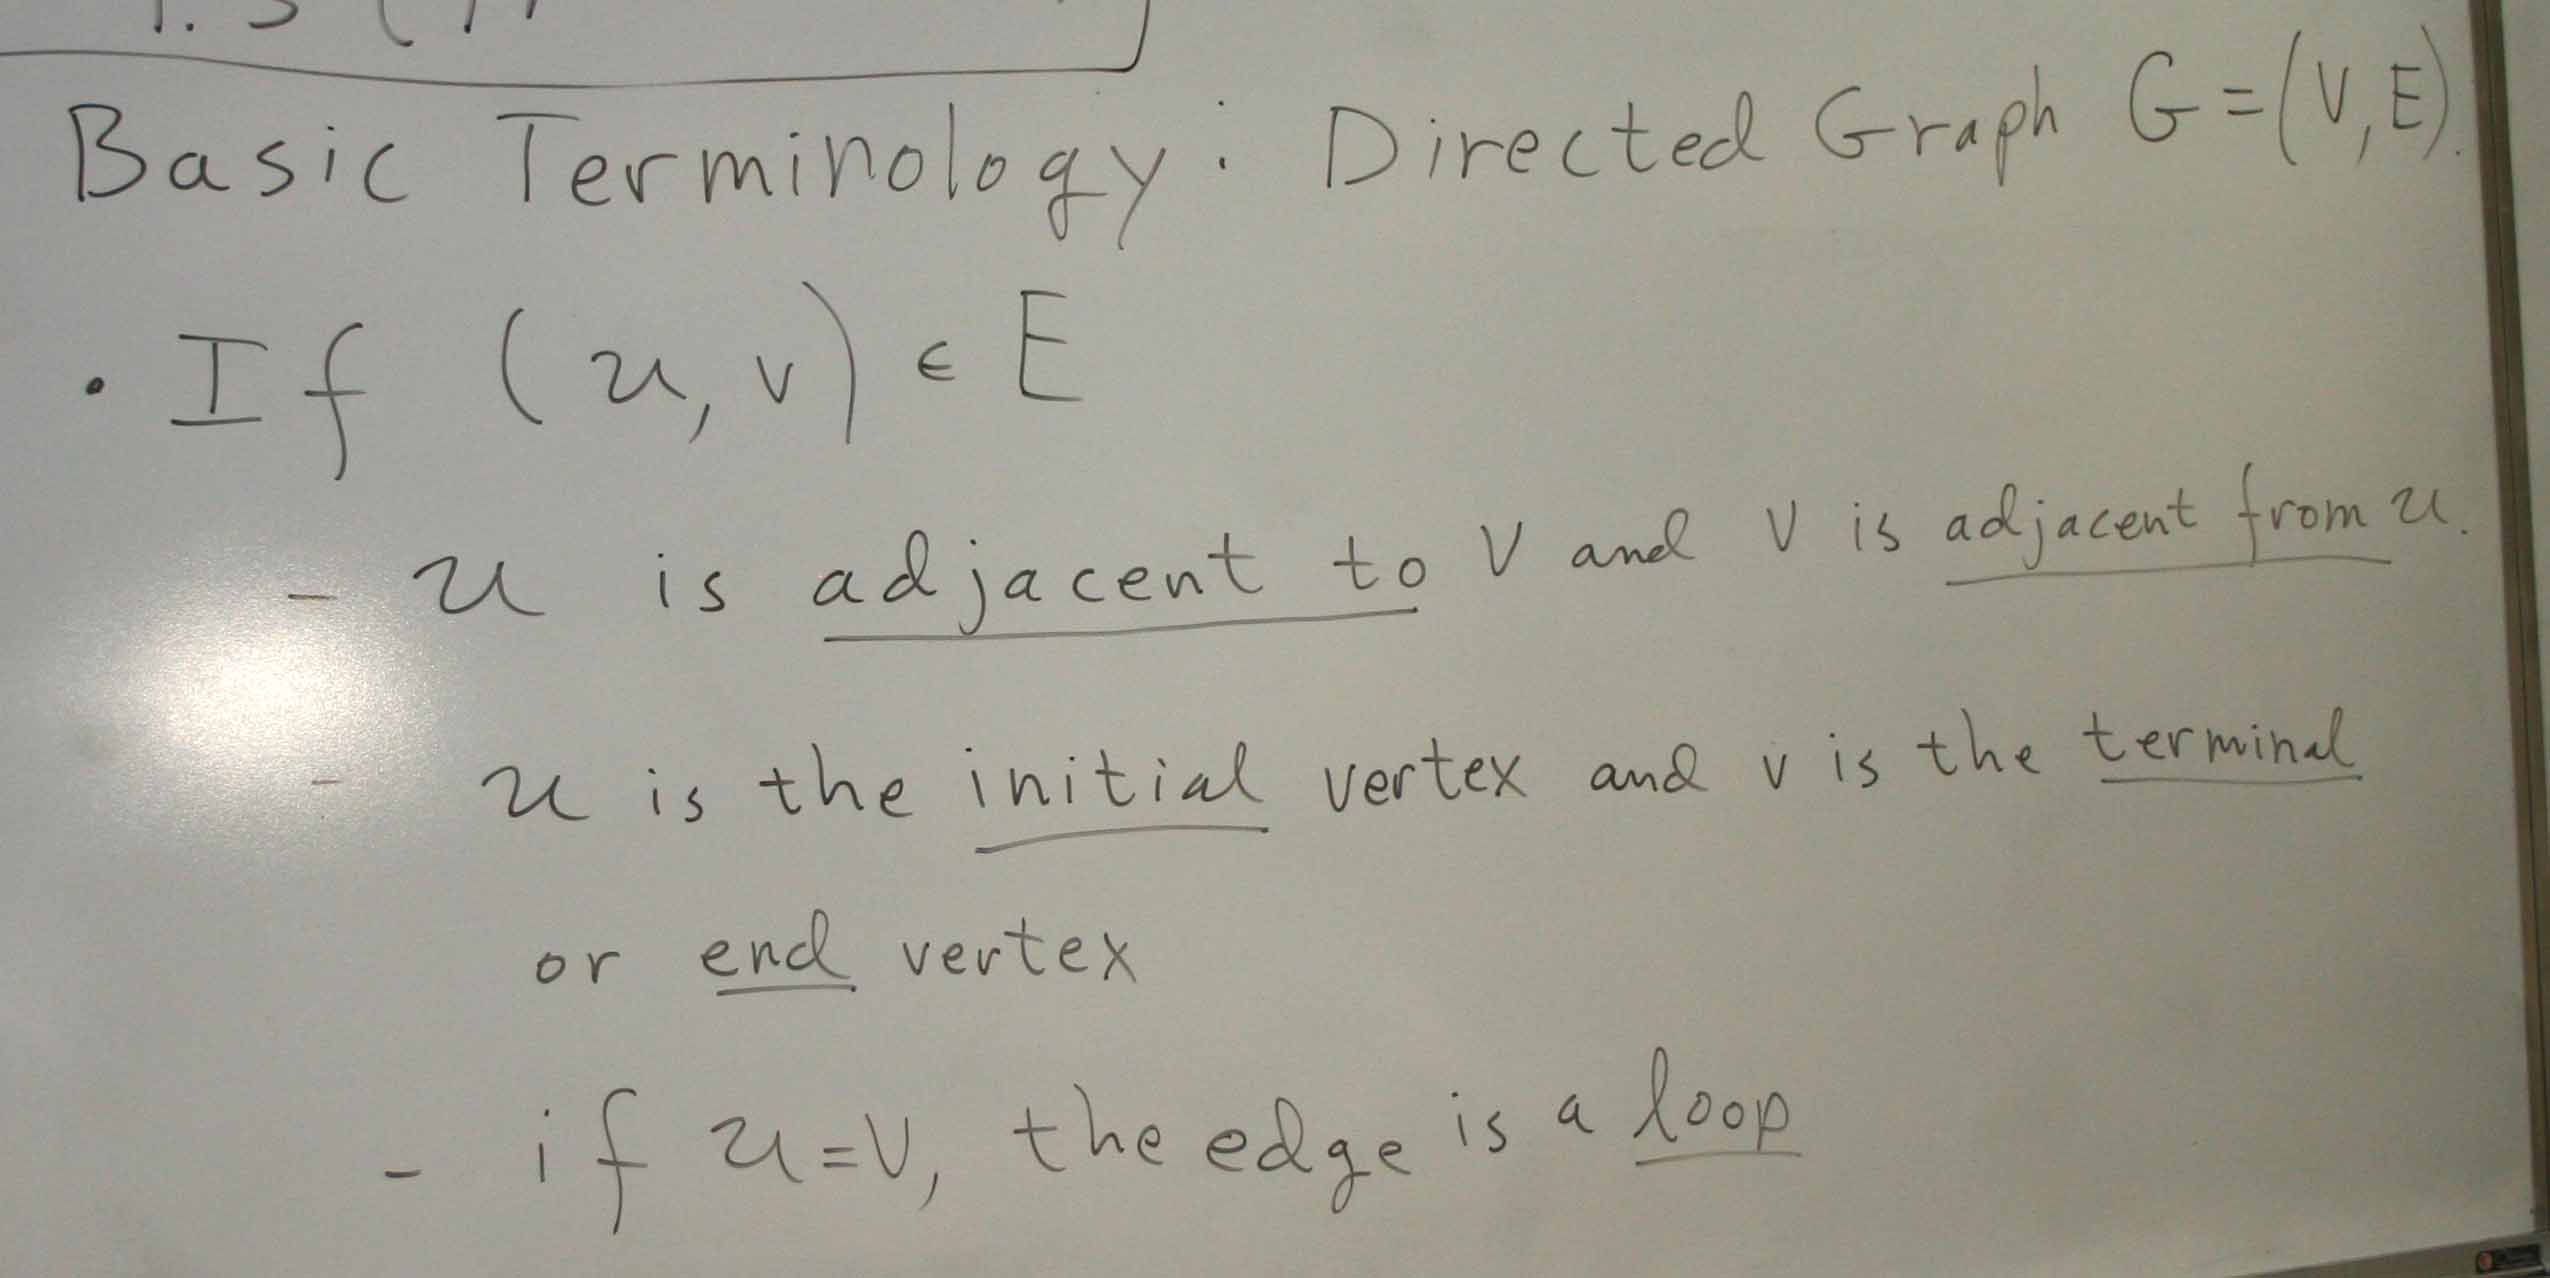 Basic Terminology: Directed Graph G=(V,E).
• If (u,v) ∈ E
- u is adjacent to v and v is adjacent from u.
- u is the initial vertex and v is the terminal
or end vertex
- if u=v, the edge is a loop